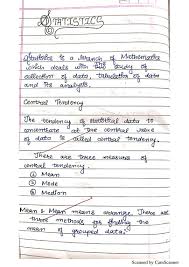 STATISTICS
Statistics is a branch of Mathematics
which deals with the study of
collection of data, tabulation of data
and its analysis.
Central Tendency
The tendency of statistical data to
concentrate at the central value
of data is called central tendency.
There are three measures of
central tendency.
① Mean
② Mode
③ Median
Mean :- Mean means average. There are
three methods for finding the
mean of grouped data.
Scanned by CamScanner